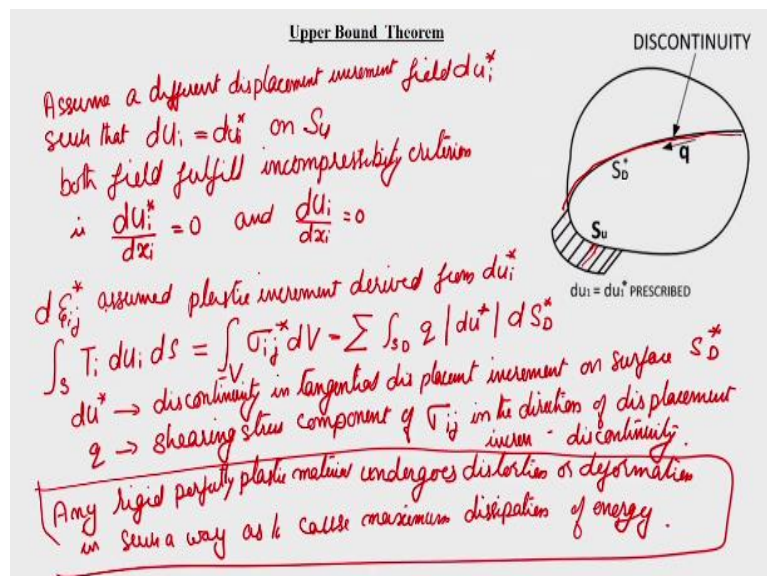 Upper Bound Theorem
Assume a different displacement increment field du_i^*
such that du_i = du_i^* on S_u
both field fulfill incompressibility criterion
ii du_i^*/dx_i = 0 and du_i/dx_i = 0
dε_ij^* assumed plastic increment derived from du_i^*
∫_S T_i du_i ds = ∫_V σ_ij^* dV - Σ ∫_SD q |du^*| dS_D^*
du^* → discontinuity in tangential dis placent increment on surface S_D^*
q → shearing stress component of σ_ij in the direction of displacement
incren - discontinuity.
Any rigid perfectly plastic material undergoes distortion or deformation
in such a way as to cause maximum dissipation of energy.
DISCONTINUITY
q
S_D^*
S_u
du_1 = du_1^* PRESCRIBED